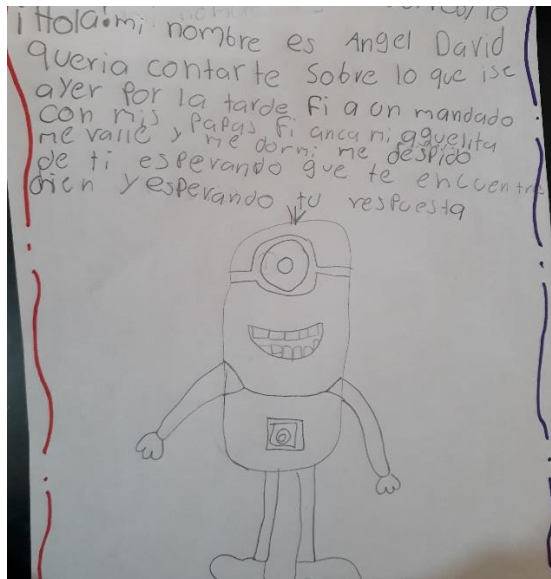 ¡Hola! mi nombre es Angel David
queria contarte sobre lo que ise
ayer por la tarde fi a un mandado
con mis papas fi anca mi aguelita
me vañe y me dormi me despido
de ti esperando que te encuentre
bien y esperando tu respuesta